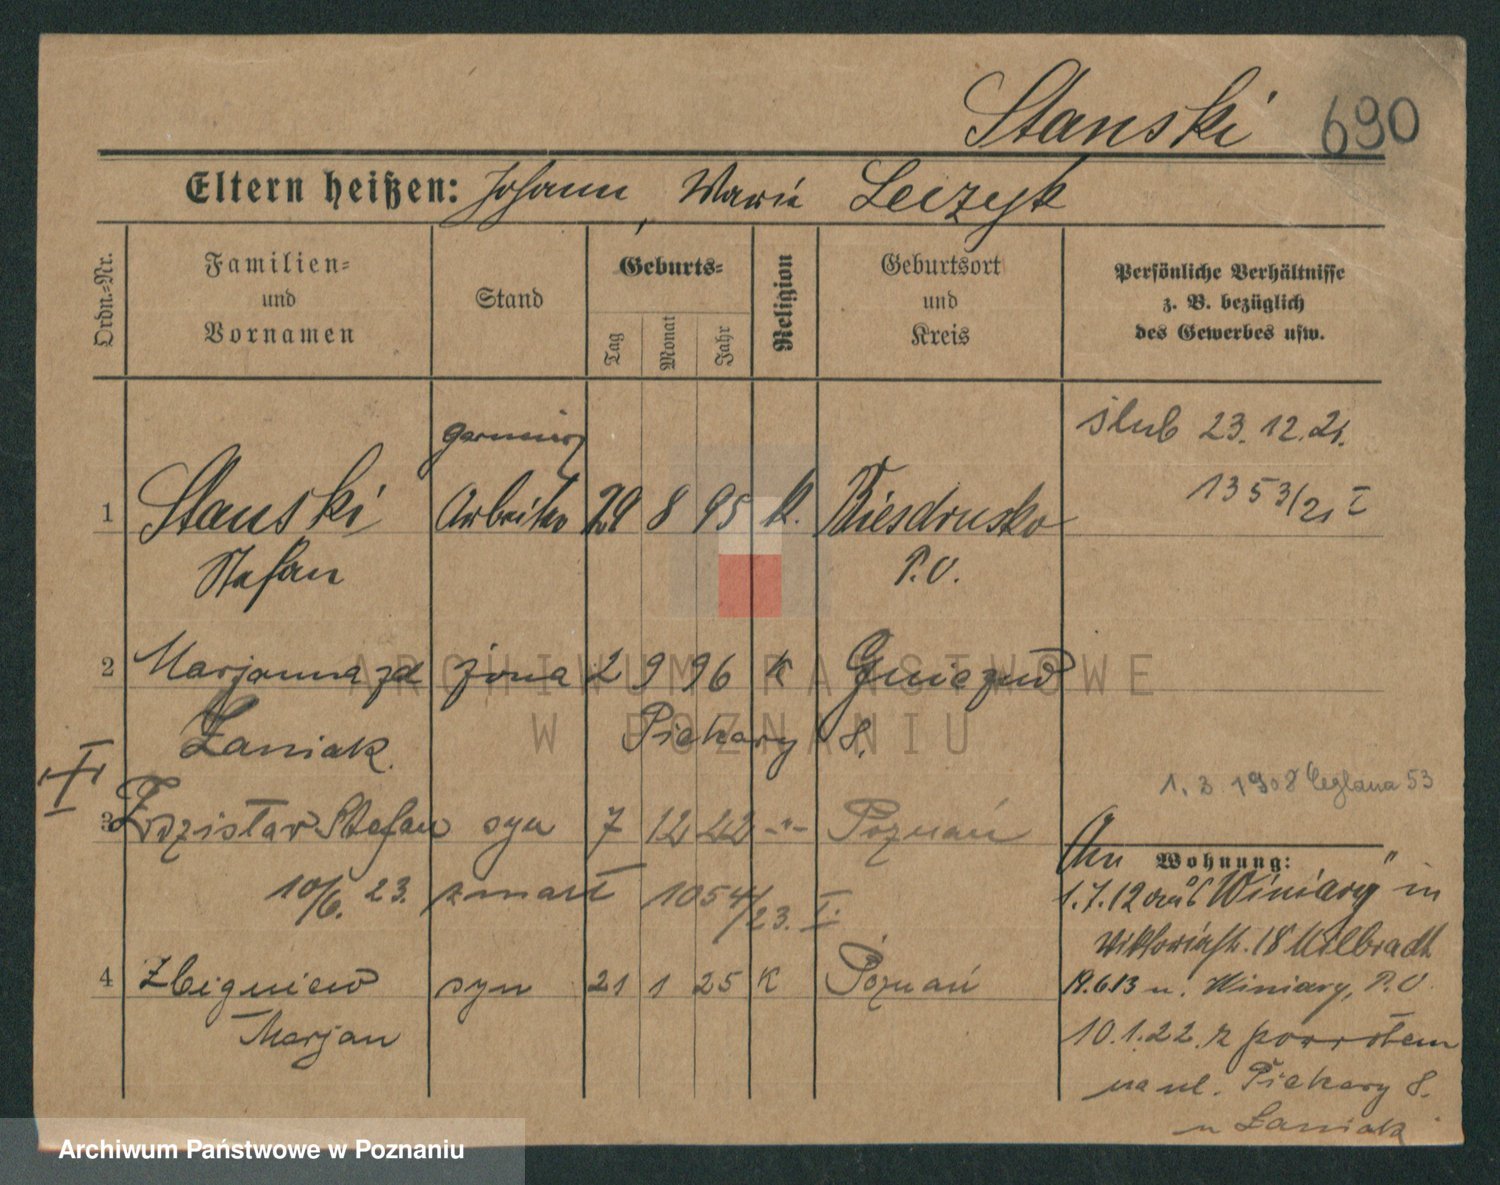 Stanski 690
Eltern heißen: Johann, Marie Leczyk
Ordn.-Nr.
Familien- und Vornamen
Stand
Geburts-
Tag
Monat
Jahr
Religion
Geburtsort und Kreis
Persönliche Verhältnisse
z. B. bezüglich
des Gewerbes usw.
ślub 23.12.21.
1353/21 I
1 Stanski Arbeiter 29 8 95 k. Biedrusko
Stefan P.O.
2 Marjanna zd żona 2 9 96 k Gniezno
Łaniak. Piekary 8.
1. 3 1908 Ceglana 53
3 Zdzisław Stefan syn 7 12 22 -"- Poznań
Wohnung:
10/6. 23. zmarł 1054/23. I.
An
1.7.12 aus "Winiary" in
Viktoriastr. 18 Milbradt
4 Zbigniew syn 21 1 25 K Poznań
Marjan
19.6.13 n. Winiary, P.O.
10.1.22. z powrotem
na ul. Piekary 8.
u Łaniak
ARCHIWUM PAŃSTWOWE
W POZNANIU
Archiwum Państwowe w Poznaniu